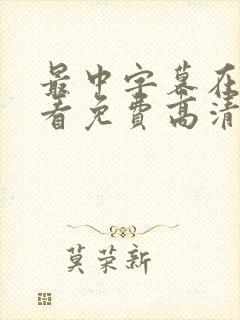 最中字幕在
看免费高清
莫荣新